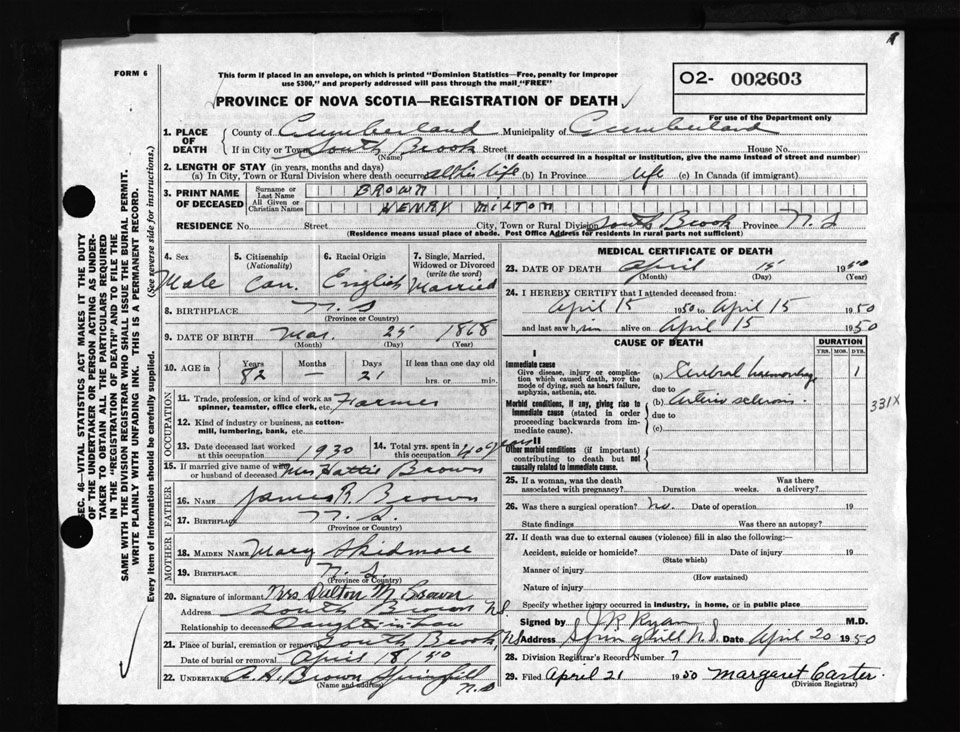 FORM 6
This form if placed in an envelope, on which is printed "Dominion Statistics—Free, penalty for improper
use $300," and properly addressed will pass through the mail "FREE"
PROVINCE OF NOVA SCOTIA—REGISTRATION OF DEATH
O2- 002603
For use of the Department only
1. PLACE OF DEATH
County of Cumberland Municipality of Cumberland
If in City or Town South Brook Street House No.
(Name) (If death occurred in a hospital or institution, give the name instead of street and number)
2. LENGTH OF STAY (in years, months and days)
(a) In City, Town or Rural Division where death occurred all his life (b) In Province life (c) In Canada (if immigrant)
3. PRINT NAME OF DECEASED
Surname or Last Name BROWN
All Given or Christian Names HENRY MILTON
RESIDENCE No. Street City, Town or Rural Division South Brook Province N.S
(Residence means usual place of abode. Post Office Address for residents in rural parts not sufficient)
4. Sex Male
5. Citizenship (Nationality) Can.
6. Racial Origin English
7. Single, Married, Widowed or Divorced (write the word) Married
8. BIRTHPLACE N.S
(Province or Country)
9. DATE OF BIRTH Mar. 25 1868
(Month) (Day) (Year)
10. AGE in Years 82 Months — Days 21 If less than one day old hrs. or min.
OCCUPATION
11. Trade, profession, or kind of work as spinner, teamster, office clerk, etc. Farmer
12. Kind of industry or business, as cotton-mill, lumbering, bank, etc.
13. Date deceased last worked at this occupation 1930
14. Total yrs. spent in this occupation 40 years
15. If married give name of wife or husband of deceased Mrs Hattie Brown
FATHER
16. NAME James R. Brown
17. BIRTHPLACE N.S.
(Province or Country)
MOTHER
18. MAIDEN NAME Mary Skidmore
19. BIRTHPLACE N.S.
(Province or Country)
20. Signature of informant Mrs Dalton M. Brown
Address South Brook N.S
Relationship to deceased Daughter in law
21. Place of burial, cremation or removal South Brook, N.S
Date of burial or removal April 18/50
22. UNDERTAKER A.H. Brown Springhill N.S
(Name and address)
MEDICAL CERTIFICATE OF DEATH
23. DATE OF DEATH April 15 1950
(Month) (Day) (Year)
24. I HEREBY CERTIFY that I attended deceased from:
April 15 1950 to April 15 1950
and last saw him alive on April 15 1950
CAUSE OF DEATH
DURATION
YRS. MOS. DYS.
I
Immediate cause
Give disease, injury or complication which caused death, NOT the mode of dying, such as heart failure, asphyxia, asthenia, etc.
(a) Cerebral haemorrhage 1
due to
Morbid conditions, if any, giving rise to immediate cause (stated in order proceeding backwards from immediate cause).
(b) Arterio sclerosis.
due to
(c)
331X
II
Other morbid conditions (if important) contributing to death but not causally related to immediate cause.
25. If a woman, was the death associated with pregnancy? Duration weeks. Was there a delivery?
26. Was there a surgical operation? No. Date of operation 19
State findings Was there an autopsy?
27. If death was due to external causes (violence) fill in also the following:
Accident, suicide or homicide? Date of injury 19
(State which)
Manner of injury
(How sustained)
Nature of injury
Specify whether injury occurred in industry, in home, or in public place
Signed by J.R. Ryan M.D.
Address Springhill N.S. Date April 20 1950
28. Division Registrar's Record Number 7
29. Filed April 21 1950 Margaret Carter.
(Division Registrar)
SEC. 46—VITAL STATISTICS ACT MAKES IT THE DUTY
OF THE UNDERTAKER OR PERSON ACTING AS UNDER-
TAKER TO OBTAIN ALL THE PARTICULARS REQUIRED
IN THE "REGISTRATION OF DEATH" AND TO FILE THE
SAME WITH THE DIVISION REGISTRAR WHO SHALL ISSUE THE BURIAL PERMIT.
WRITE PLAINLY WITH UNFADING INK. THIS IS A PERMANENT RECORD.
Every item of information should be carefully supplied. (See reverse side for instructions.)